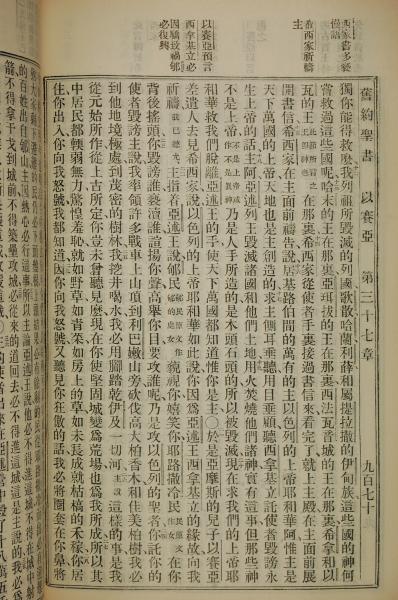 西家書多褻慢語
希西家祈禱主
以賽亞預言西拿基立必因驕致禍郇必復興
舊約聖書 以賽亞 第三十七章 九百七十
獨你能得救麼我列祖所毀滅的列國歌散哈蘭利薛和屬提拉撒的伊甸族這些國的神何
嘗救過這些國呢哈末的王在那裏亞珥拔的王在那裏西法瓦音城的王在那裏希拿和以
瓦的王此節所言之王即神也在那裏希西家從使者手裏接過書信來看完了就上主殿在主面前展
開書信希西家在主面前禱告說居基路伯間的萬有的主以色列的上帝耶和華阿惟主是
天下萬國的上帝天地也是主創造的求主側耳垂聽用目垂顧聽西拿基立託使者毀謗永
生上帝的話主阿亞述列王毀滅諸國和他們土地用火焚燒他們諸神實有這事但那些神
不是上帝不是上帝或作不是眞神乃是人手所造的是木頭石頭的所以被毀滅現在求我們的上帝耶
和華救我們脫離亞述王的手使天下萬國都知道惟你是主○於是亞摩斯的兒子以賽亞
差遣人去見希西家說以色列的上帝耶和華如此說你因爲亞述王西拿基立的緣故向我
祈禱我已聽允主指着亞述王說郇民郇民原文作郇女藐視你嬉笑你耶路撒冷民民原文作女在你
背後搖頭你毀謗誰褻瀆誰諠揚你聲高舉你目要攻誰呢乃是攻以色列的聖者你託你的
使者毀謗主說我率領許多戰車上山頂到利巴嫩山旁砍伐高大柏香木和佳美柏樹我必
到他地境極處到茂密的樹林我挖井喝水我必用腳踏乾伊及一切河主說這樣的事是我
從元始所作從上古所定你豈未曾聽見麼現在你使堅固城變爲荒場也爲我所成所以其
中居民都輭弱無力驚惶羞恥就如野草如靑菜如房上的草如未長成就枯槁的禾稼你居
住你出入你向我怒號我都知道因你向我怒號又聽見你狂傲的話我必將圈套在你鼻將